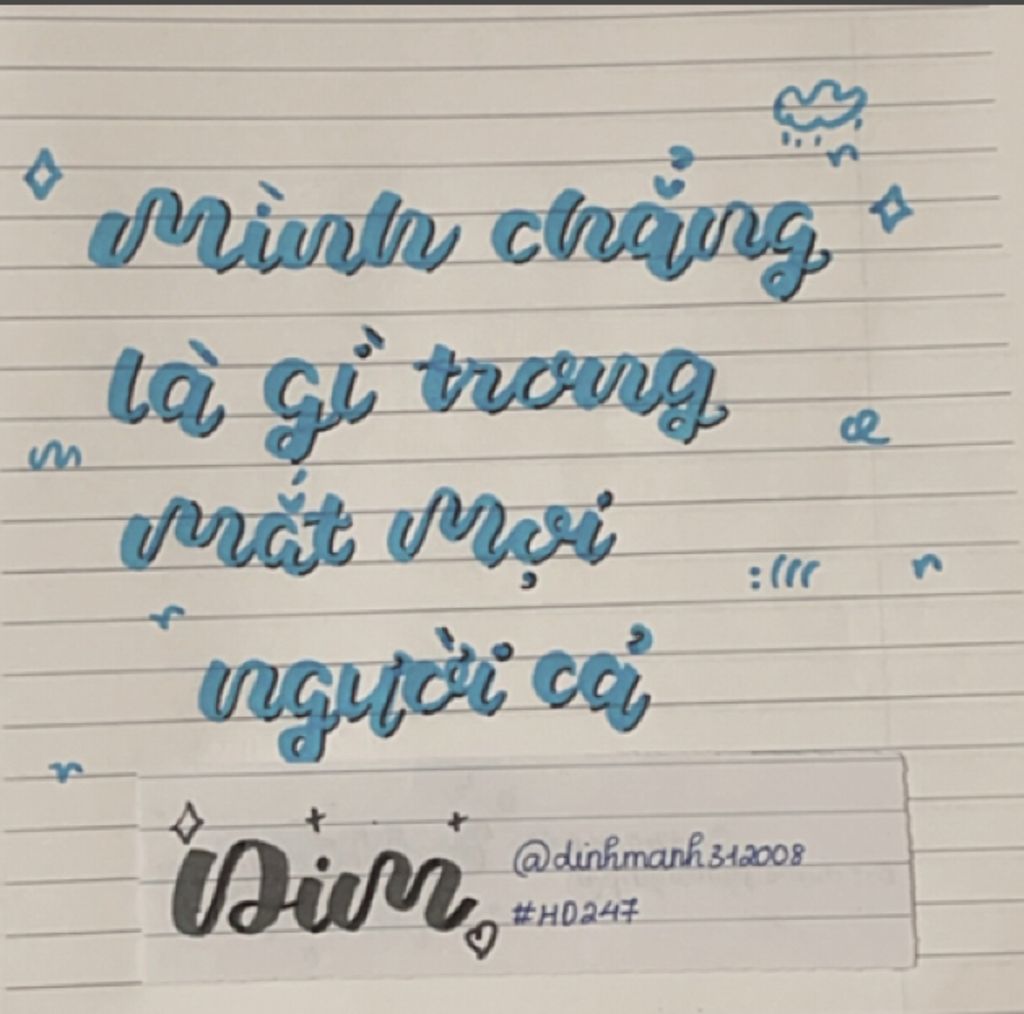 mình chẳng
là gì trong
mắt mọi
:(((
người cả
Dim
@dinhmanh312008
#HD247